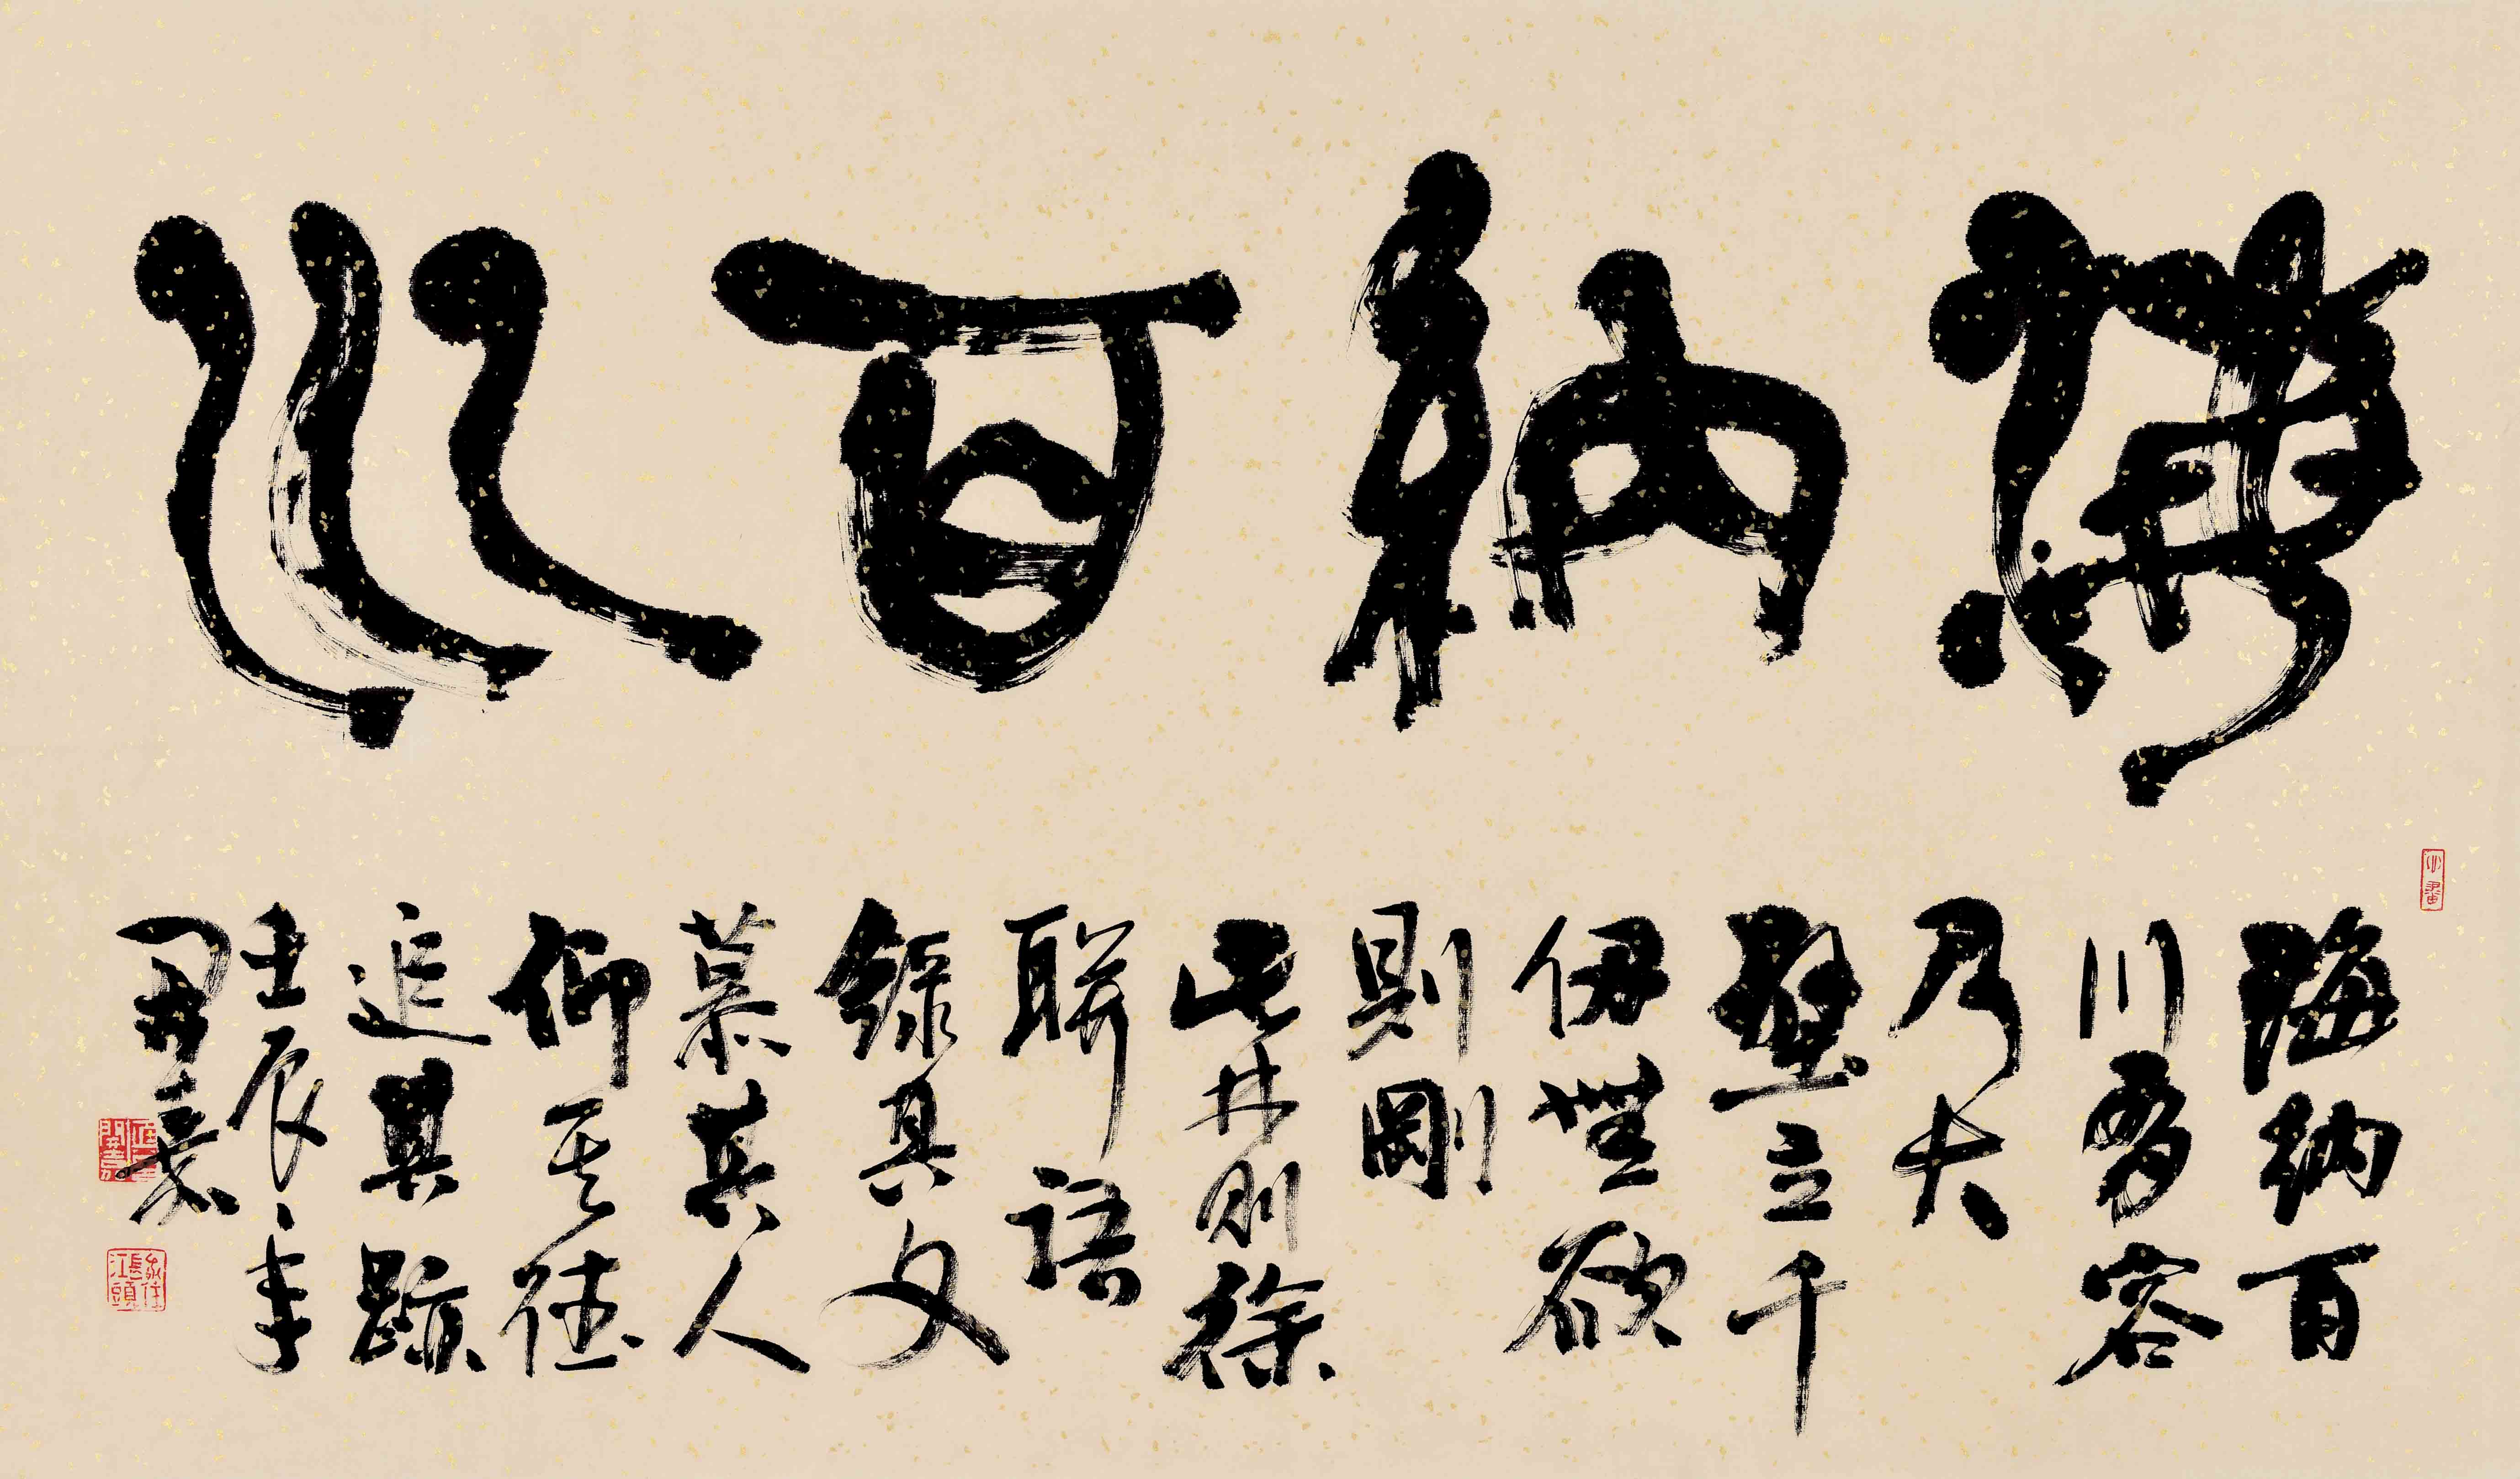 海納百川
海納百
川有容
乃大
壁立千
仞無欲
則剛
此林則徐
聯語
錄其文
慕其人
仰其德
追其跡
壬辰年
家住長江頭